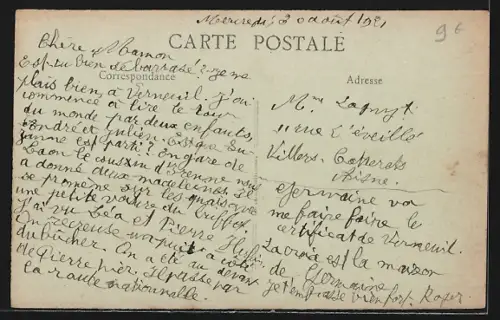 Mercredi 3 août 1921
96
CARTE POSTALE
Correspondance
Adresse
Chère Maman
Es tu bien débarrasé? je me
plais bien à Verneuil. J'ai
commencé à lire le tour
du monde par deux enfants,
André et Julien. Est que Su-
zanne est parti? En gare de
Laon le cousin d'Irenne nous
a donné deux madeleines. Il
se promène sur les quais avec
une petite voiture du Buffet.
J'ai vu Léa et Pierre
On creuse un puit à côté
du bûcher. On a été au devant
de Pierre hier. Il passe par
la route nationnalle.
Mme
11 rue l'éveillé
Villers-Cotterets
Aisne.
Germaine va
me faire faire le
certificat de Verneuil.
La croix est la maison
de Germaine
je t'embrasse bien fort Roger